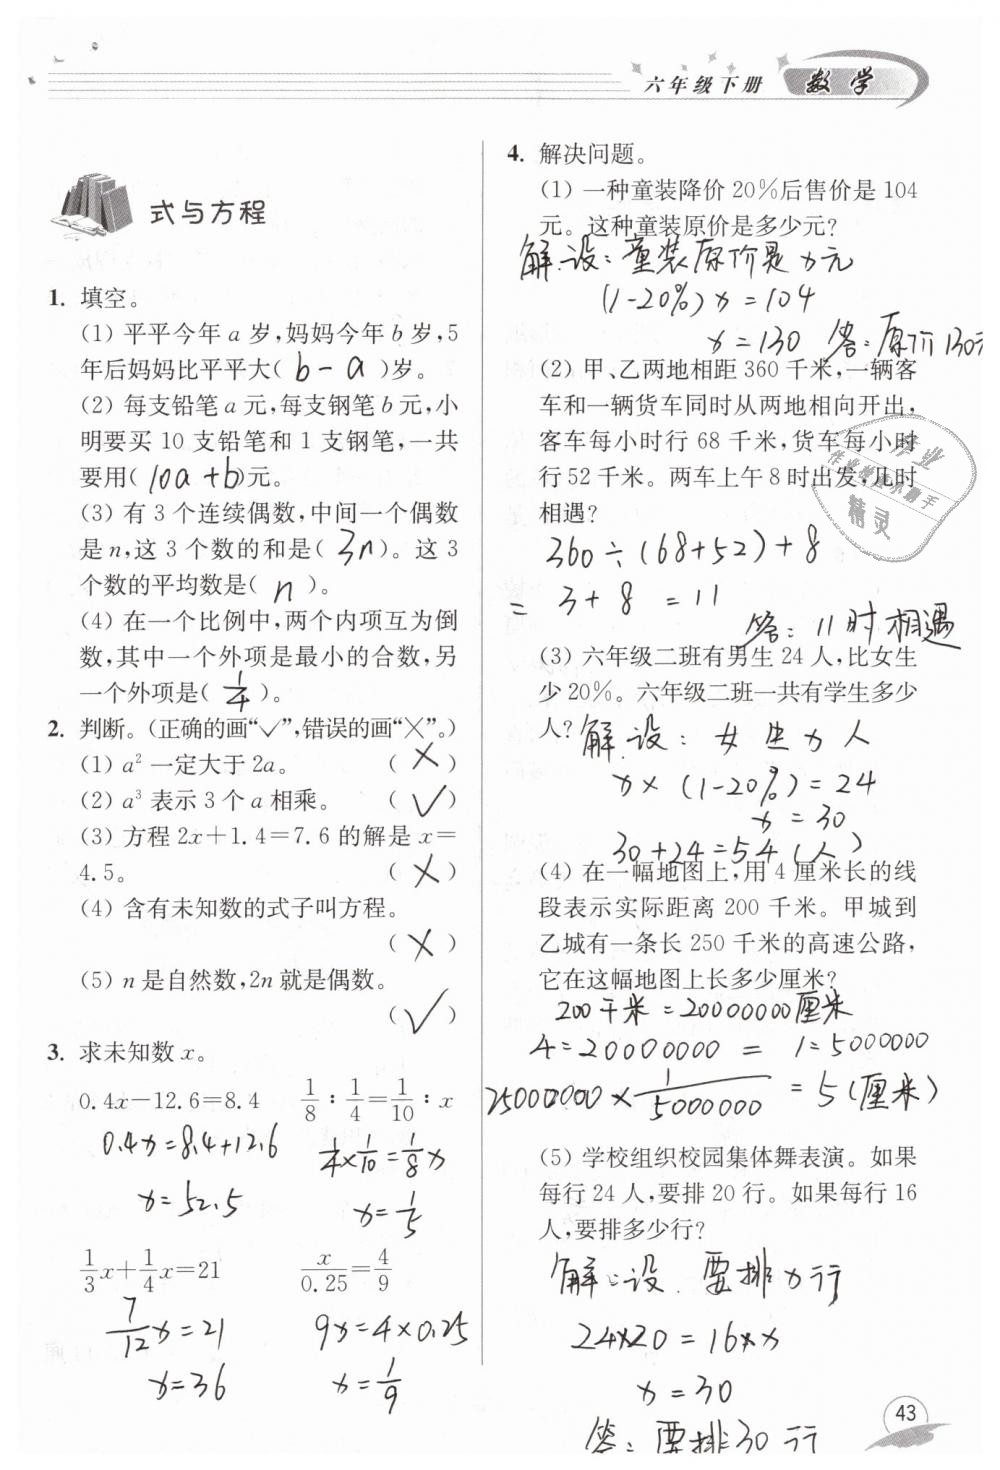 六年级下册 数学
式与方程
1. 填空。
(1) 平平今年 a 岁,妈妈今年 b 岁,5
年后妈妈比平平大( b-a )岁。
(2) 每支铅笔 a 元,每支钢笔 b 元,小
明要买 10 支铅笔和 1 支钢笔,一共
要用( 10a+b )元。
(3) 有 3 个连续偶数,中间一个偶数
是 n,这 3 个数的和是( 3n )。这 3
个数的平均数是( n )。
(4) 在一个比例中,两个内项互为倒
数,其中一个外项是最小的合数,另
一个外项是( 1/4 )。
2. 判断。(正确的画“✓”,错误的画“×”。)
(1) a² 一定大于 2a。 ( × )
(2) a³ 表示 3 个 a 相乘。 ( ✓ )
(3) 方程 2x+1.4=7.6 的解是 x=
4.5。 ( × )
(4) 含有未知数的式子叫方程。
( × )
(5) n 是自然数,2n 就是偶数。
( ✓ )
3. 求未知数 x。
0.4x-12.6=8.4 1/8 : 1/4 = 1/10 : x
0.4x=8.4+12.6 1/4×1/10=1/8x
x=52.5 x=1/5
1/3x+1/4x=21 x/0.25=4/9
7/12x=21 9x=4×0.25
x=36 x=1/9
4. 解决问题。
(1) 一种童装降价 20%后售价是 104
元。这种童装原价是多少元?
解:设:童装原价是x元
(1-20%)x=104
x=130 答:原价130元
(2) 甲、乙两地相距 360 千米,一辆客
车和一辆货车同时从两地相向开出,
客车每小时行 68 千米,货车每小时
行 52 千米。两车上午 8 时出发,几时
相遇?
作业
作业检查小帮手
精灵
360÷(68+52)+8
= 3+8 =11
答:11时相遇
(3) 六年级二班有男生 24 人,比女生
少 20%。六年级二班一共有学生多少
人?
解:设:女生x人
x×(1-20%)=24
x=30
30+24=54(人)
(4) 在一幅地图上,用 4 厘米长的线
段表示实际距离 200 千米。甲城到
乙城有一条长 250 千米的高速公路,
它在这幅地图上长多少厘米?
200千米=20000000厘米
4:20000000 = 1:5000000
25000000×1/5000000=5(厘米)
(5) 学校组织校园集体舞表演。如果
每行 24 人,要排 20 行。如果每行 16
人,要排多少行?
解:设.要排x行
24×20=16×x
x=30
答:要排30行
43